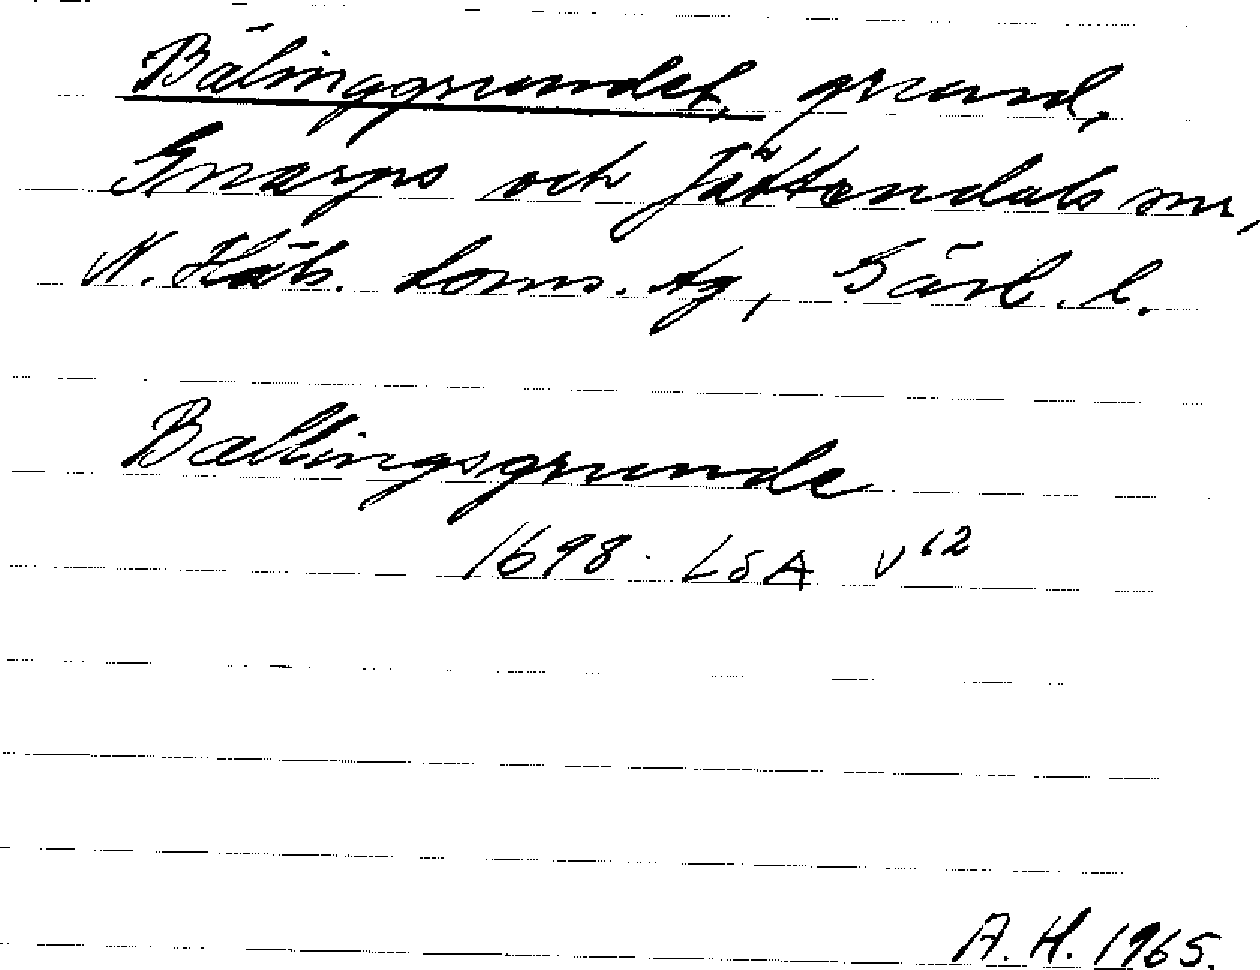 Bälinggrundet, grund,
Gnarps och Jättendals snr,
N. Häls. doms. tg, Gävl. l.
Ballingsgrunde
1698. LSA V 12
A. H. 1965.